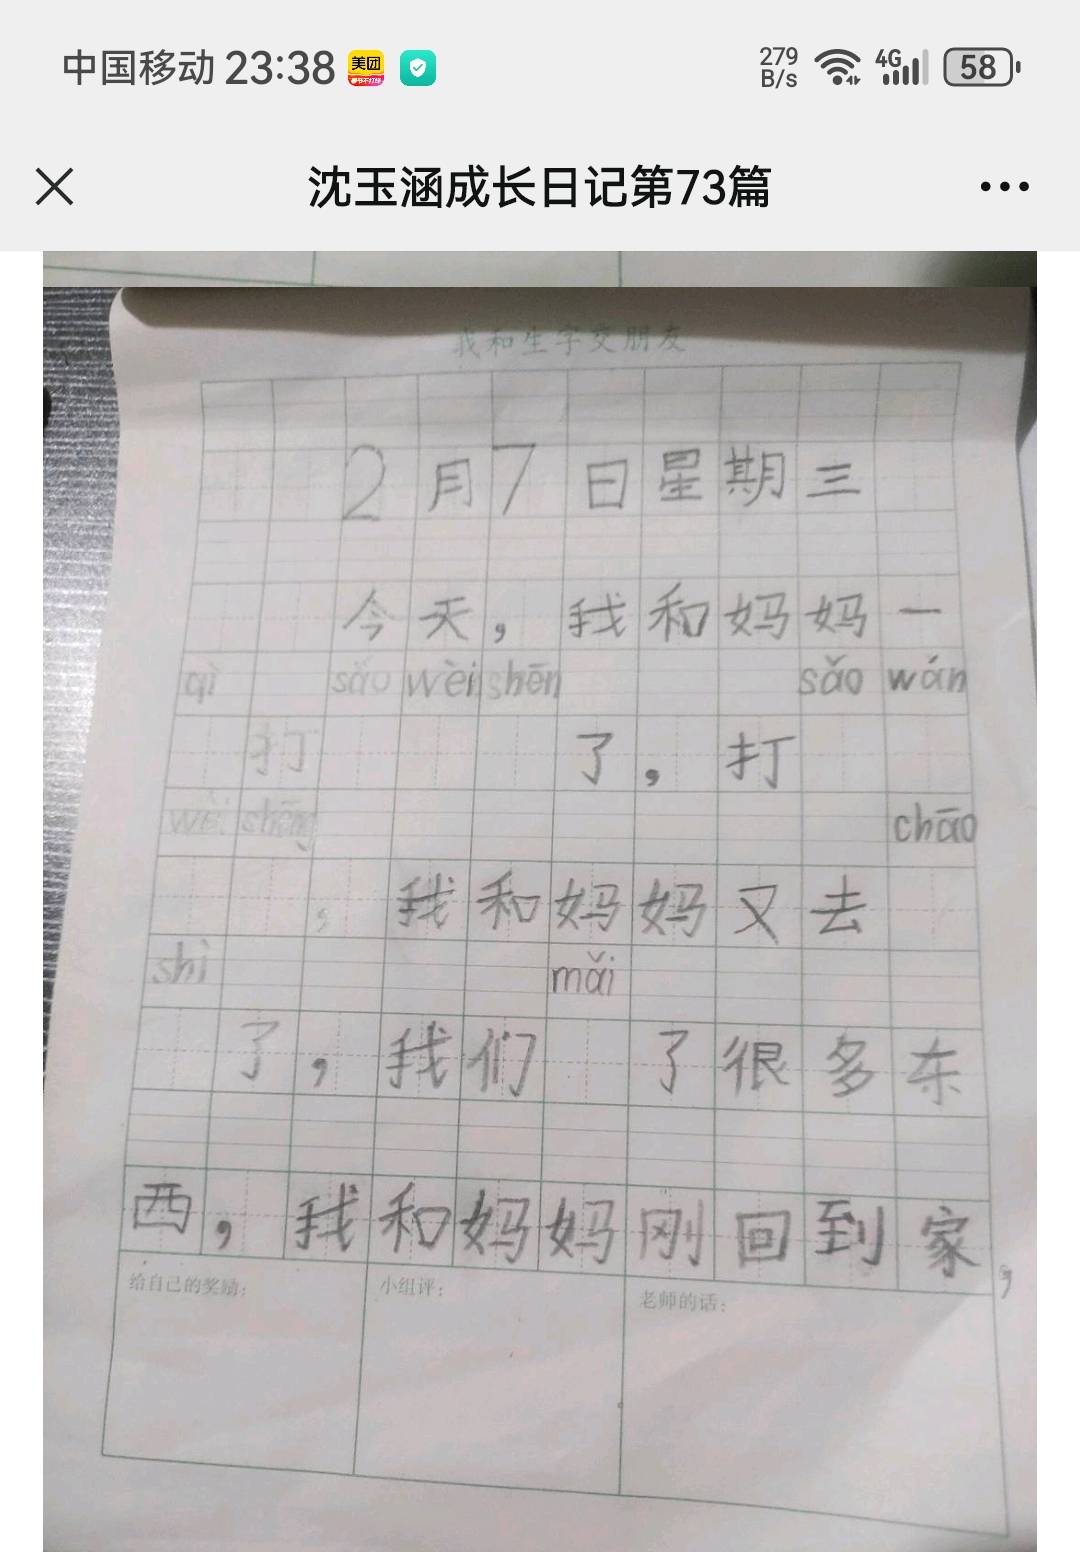 中国移动 23:38 美团 279 B/s 4G 58
沈玉涵成长日记第73篇
我和生字交朋友
2月7日星期三
今天，我和妈妈一
qì sǎo wèi shēn sǎo wán
打 了，打
wèi shēng chāo
，我和妈妈又去
shì mǎi
了，我们 了很多东
西，我和妈妈刚回到家，
给自己的奖励：
小组评：
老师的话：